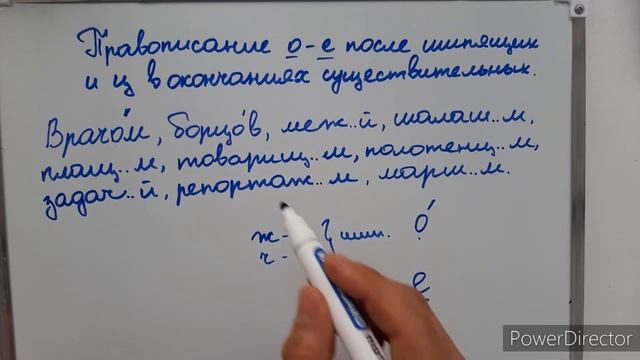 Правописание о-е после шипящих
и ц в окончаниях существительных.
Врачо́м, борцо́в, меж..й, шалаш..м,
плащ..м, товарищ..м, полотенц..м,
задач..й, репортаж..м, марш..м.
ж- } шип. о́
ч- е
PowerDirector